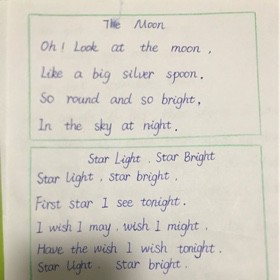 The Moon
Oh! Look at the moon,
Like a big silver spoon.
So round and so bright,
In the sky at night.
Star Light. Star Bright
Star light, star bright.
First star I see tonight.
I wish I may. wish I might.
Have the wish I wish tonight.
Star light. star bright.